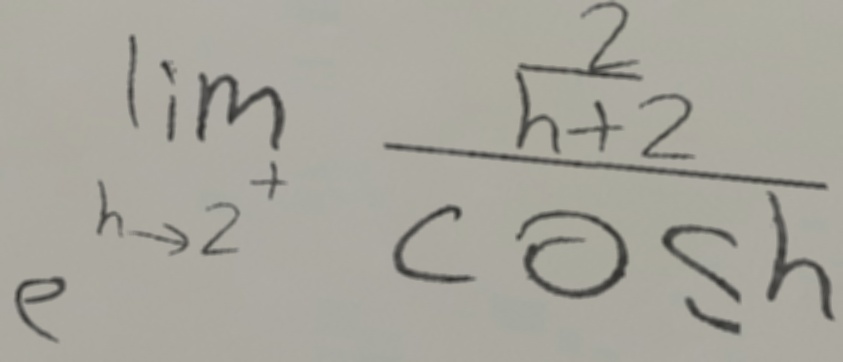 e^{\lim_{h \to 2^{+}} \frac{\frac{2}{h+2}}{\cos h}}